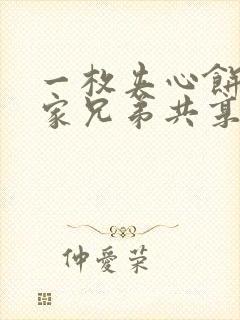 一枚夹心餅
家兄弟共某
仲愛荣